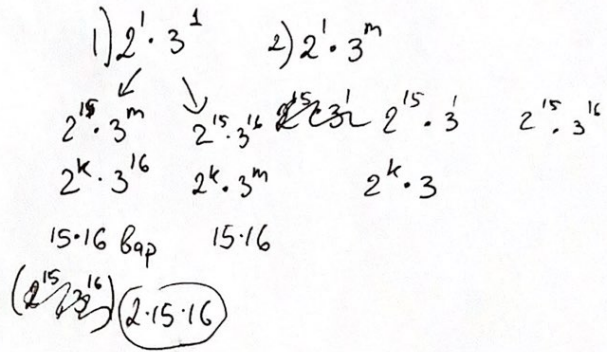 1) 2^1 · 3^1 2) 2^1 · 3^m
2^15 · 3^m 2^15 · 3^16 2^15 · 3^1 2^15 · 3^1 2^15 · 3^16
2^k · 3^16 2^k · 3^m 2^k · 3
15·16 вар 15·16
2·15·16